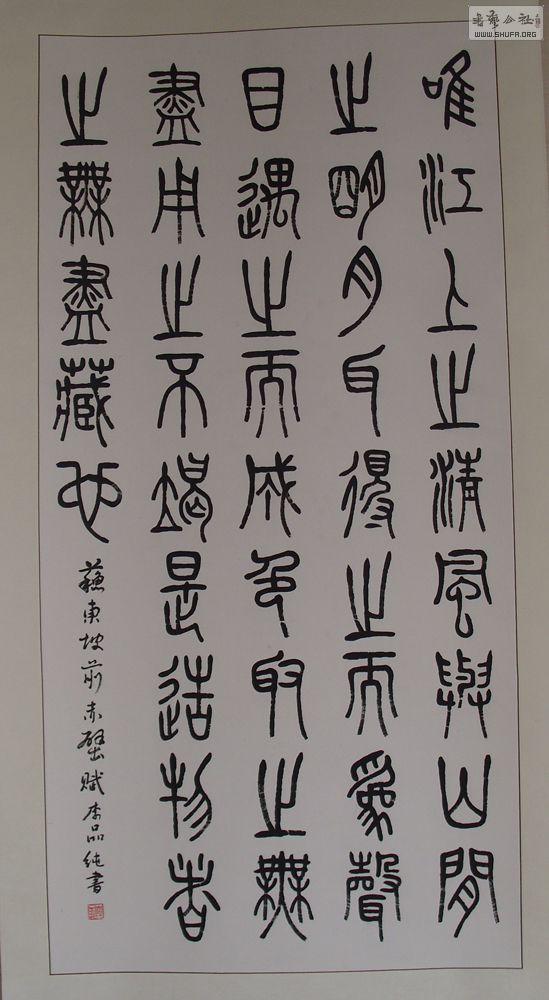 唯江上之清風與山閒
之明月耳得之而為聲
目遇之而成色取之無
盡用之不竭是造物者
之無盡藏也
蘇東坡前赤壁賦李品純書
書藝公社
WWW.SHUFA.ORG